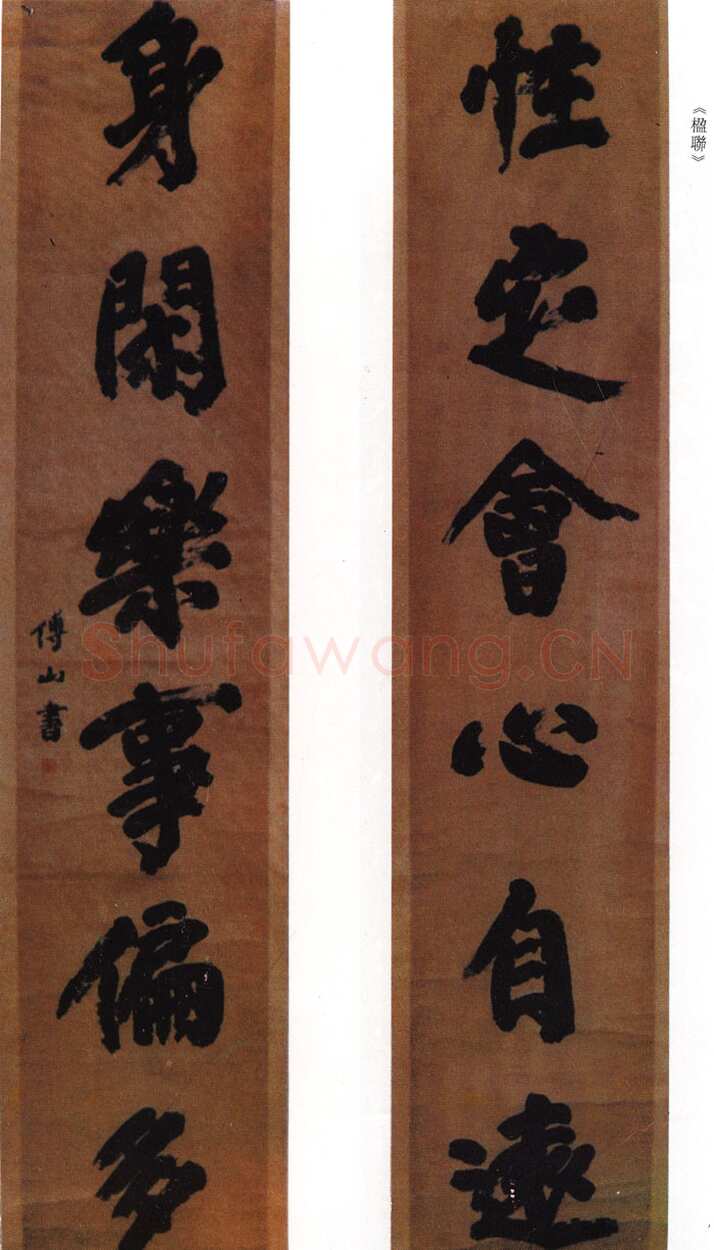 《楹聯》
性定會心自遠
身閑樂事偏多
傅山書
Shufawang.CN